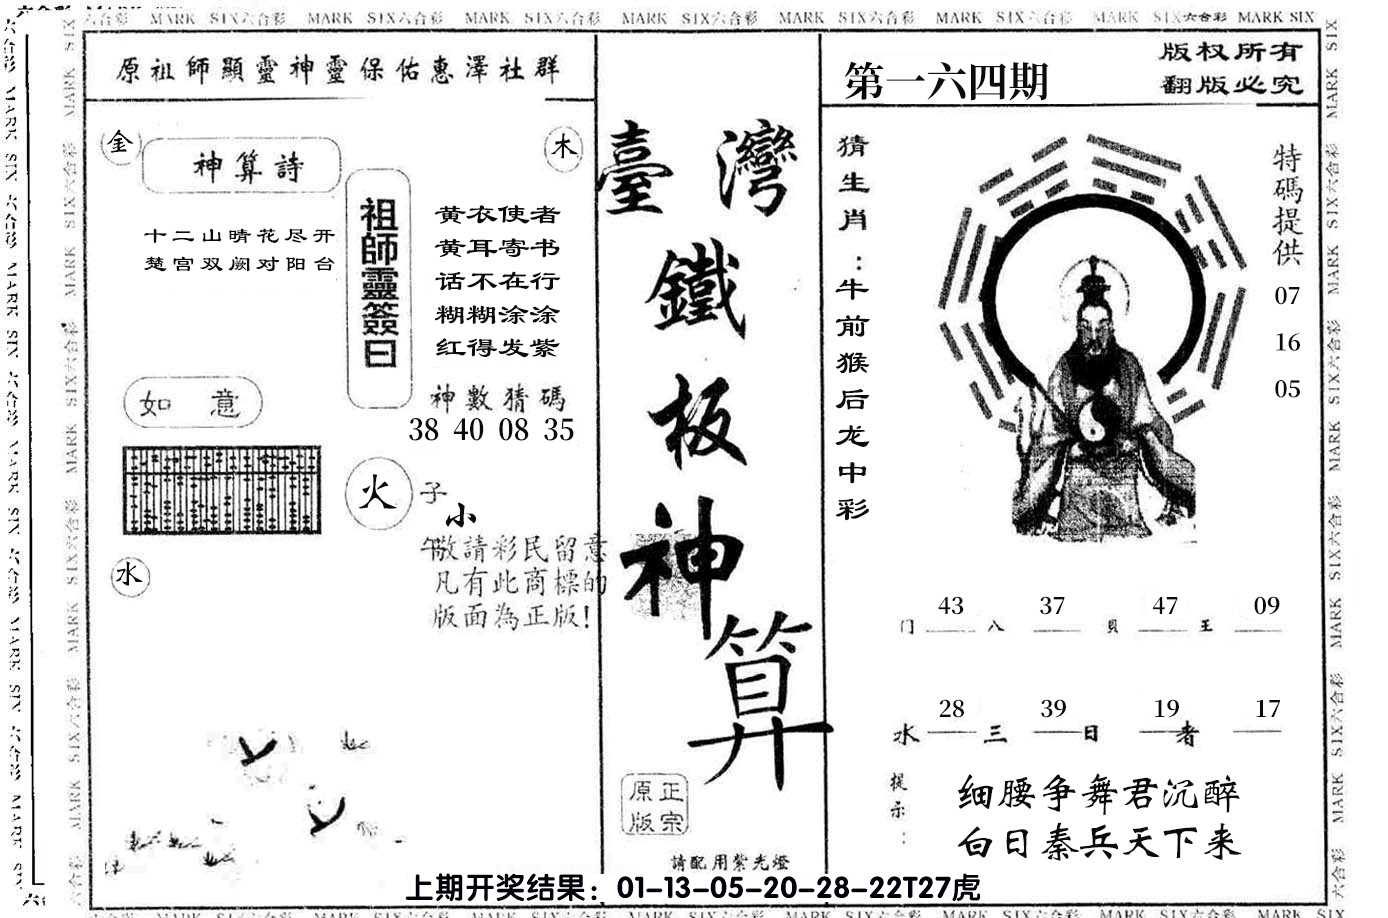 MARK SIX六合彩 MARK SIX六合彩 MARK SIX六合彩 MARK SIX六合彩 MARK SIX六合彩 MARK SIX六合彩 MARK SIX六合彩 MARK SIX
原祖師顯靈神靈保佑惠澤社群
金
神算詩
木
十二山晴花尽开
楚宫双阙对阳台
祖師靈簽曰
黄衣使者
黄耳寄书
话不在行
糊糊涂涂
红得发紫
神數猜碼
38 40 08 35
如意
火
子
小
午
水
敬請彩民留意
凡有此商標的
版面為正版!
臺灣
鐵
板
神
算
正宗
原版
請配用紫光燈
第一六四期
版权所有
翻版必究
猜生肖:牛前猴后龙中彩
特碼提供
07
16
05
43 37 47 09
门 八 貝 王
28 39 19 17
水 三 日 者
提示:
细腰争舞君沉醉
白日秦兵天下来
上期开奖结果：01-13-05-20-28-22T27虎